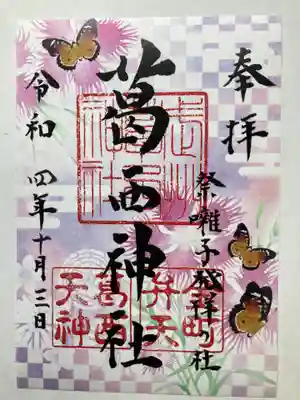 奉拝
祭囃子発祥の社
葛西神社
令和四年十月三日
葛西神社
葛西天神
弁天